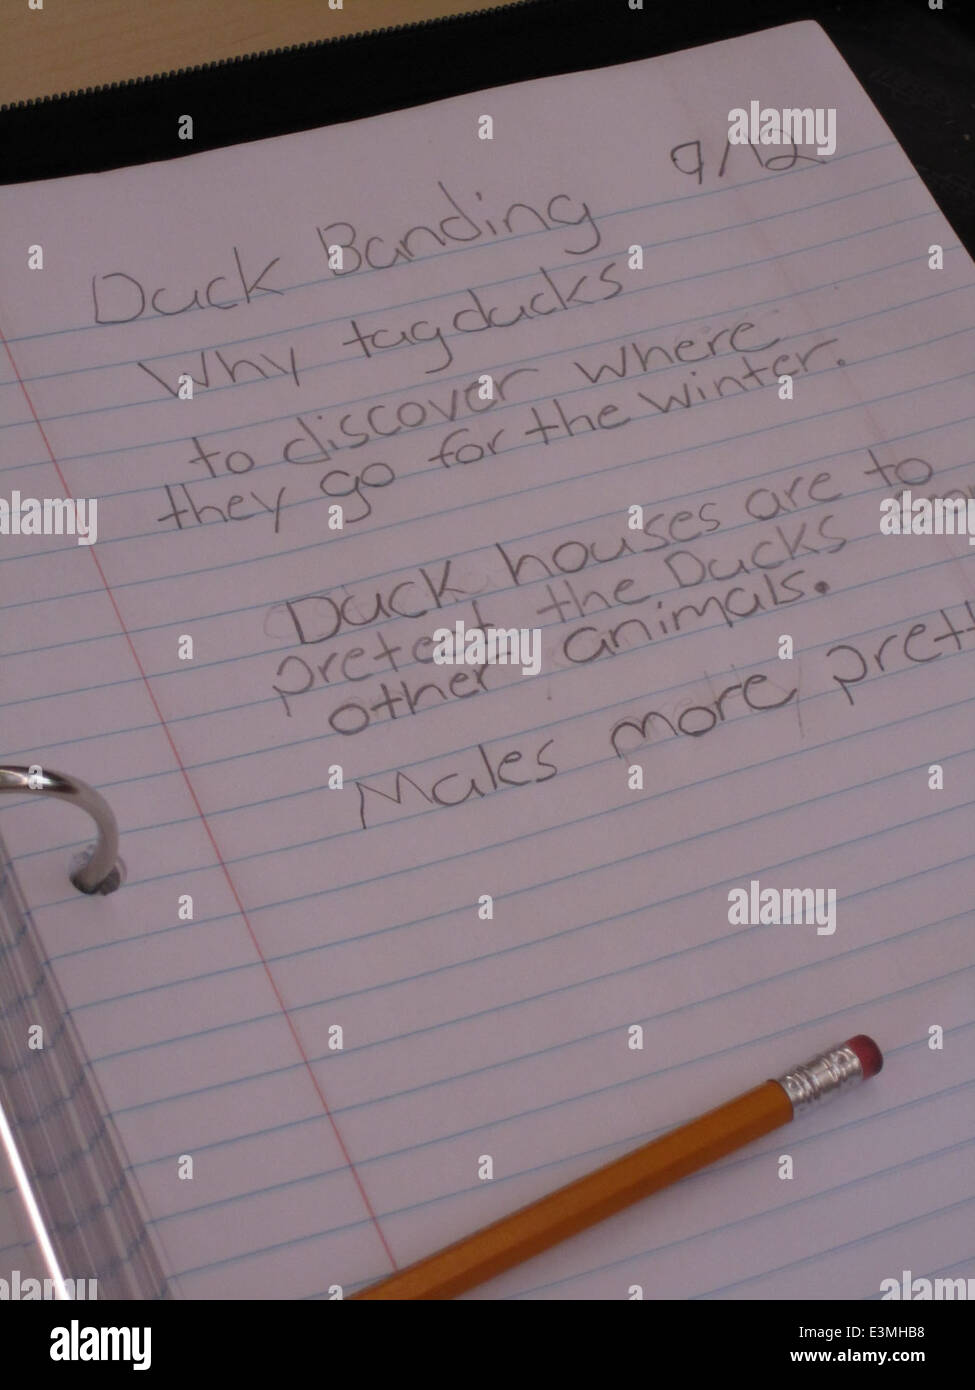 9/12
Duck Banding
Why tag ducks
to discover where
they go for the winter.
Duck houses are to
pretect the Ducks
other animals.
Males more
alamy
Image ID: E3MHB8
www.alamy.com